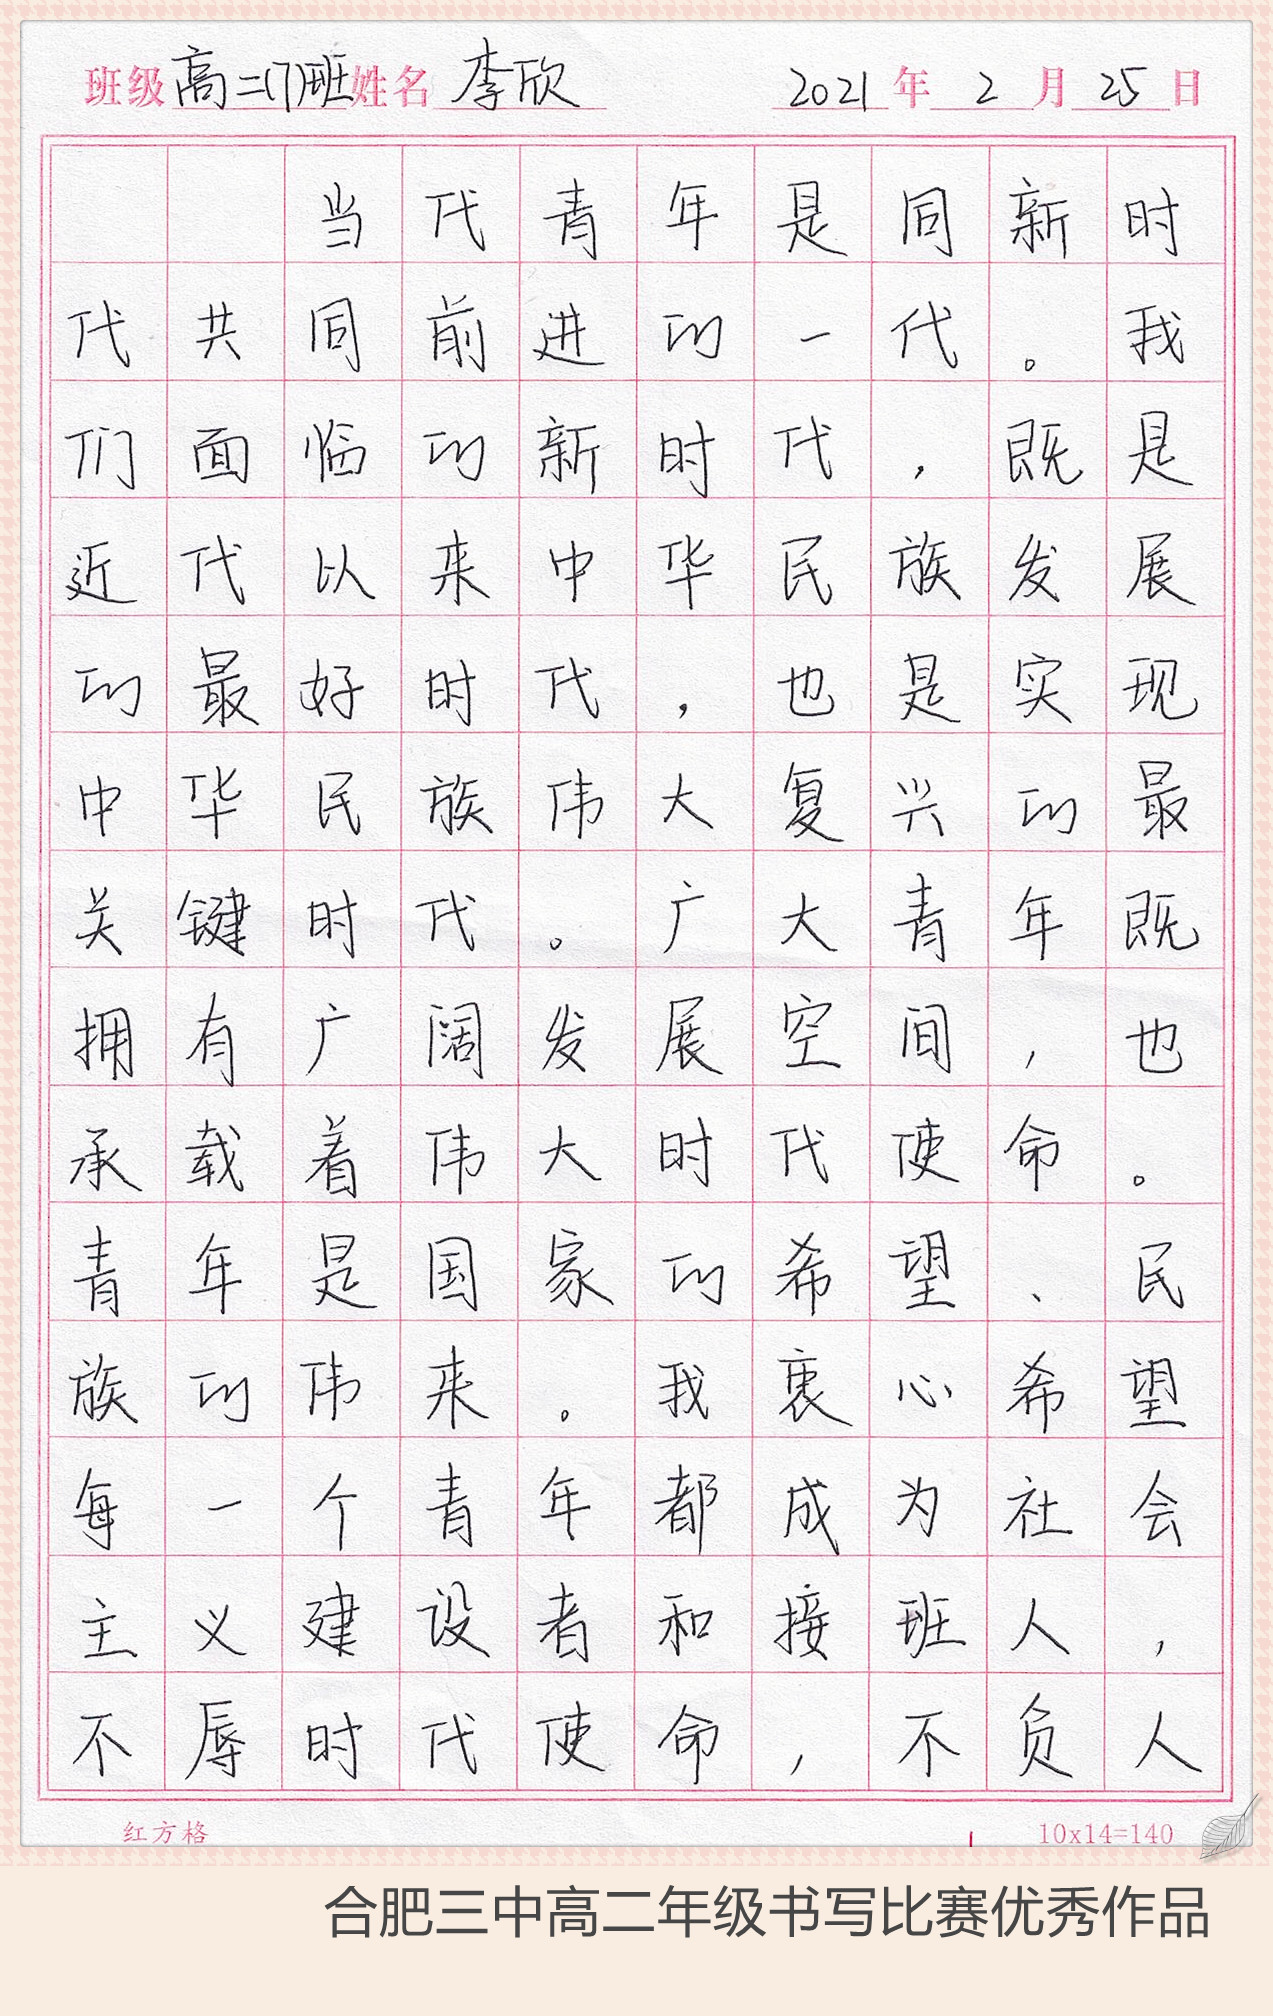 班级 高二(7)班 姓名 李欣 2021 年 2 月 25 日
当代青年是同新时
代共同前进的一代。我
们面临的新时代，既是
近代以来中华民族发展
的最好时代，也是实现
中华民族伟大复兴的最
关键时代。广大青年既
拥有广阔发展空间，也
承载着伟大时代使命。
青年是国家的希望、民
族的伟来。我衷心希望
每一个青年都成为社会
主义建设者和接班人，
不辱时代使命，不负人
红方格 10x14=140
合肥三中高二年级书写比赛优秀作品